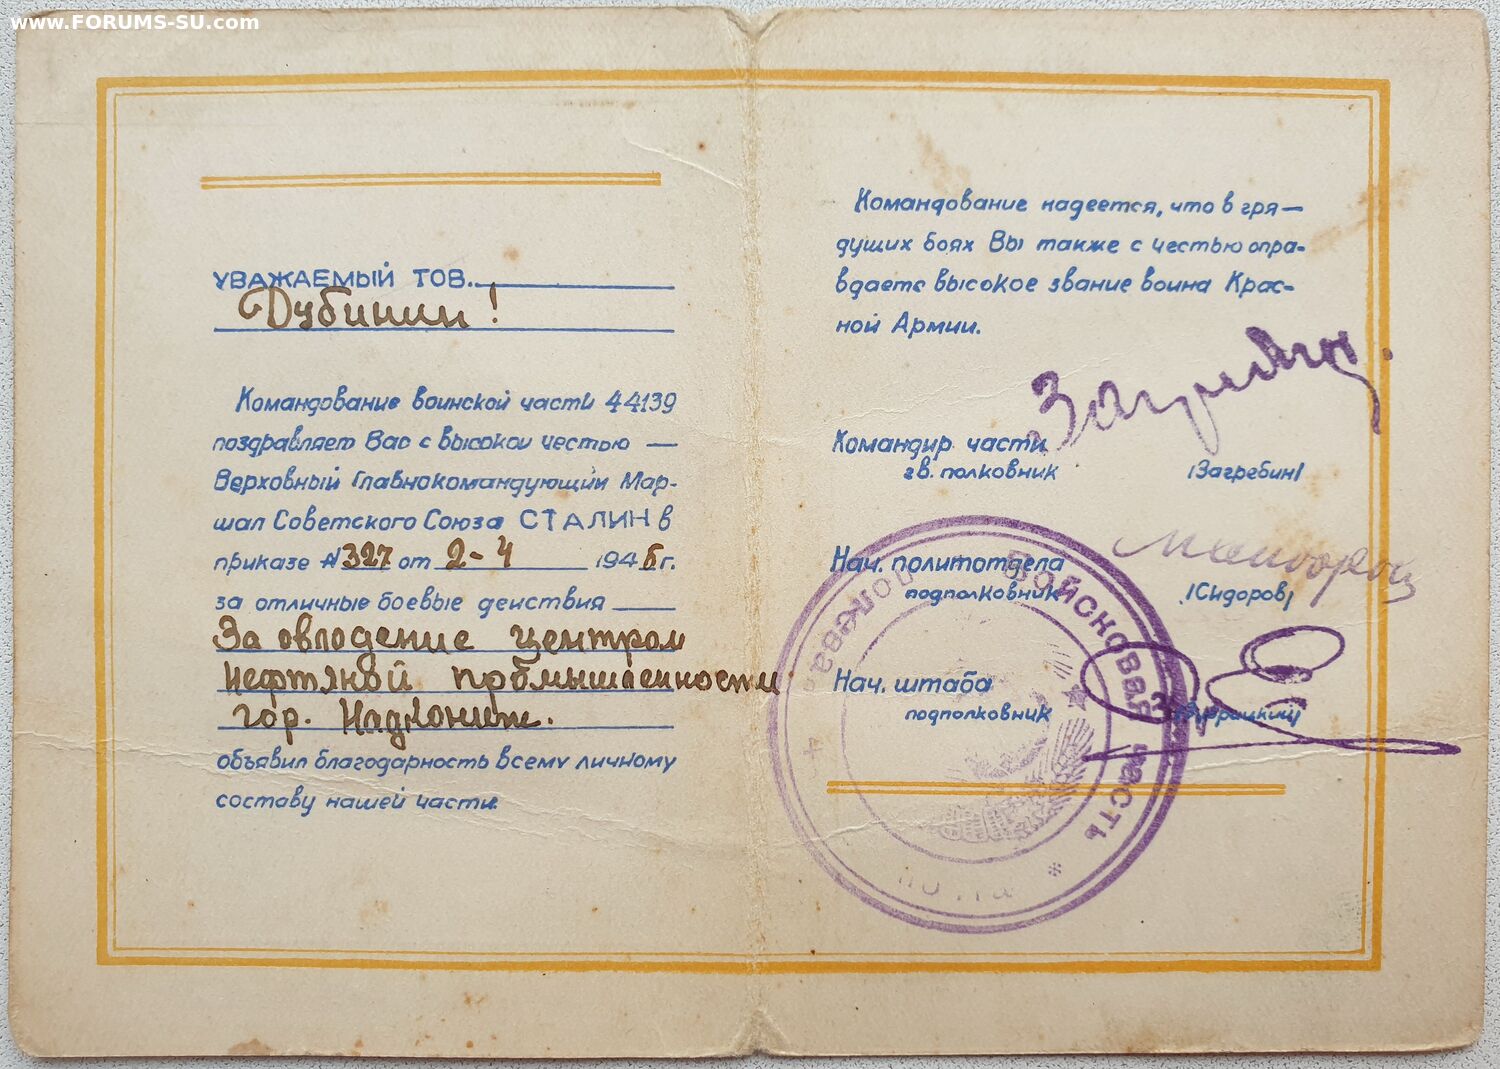 www.FORUMS-SU.com
УВАЖАЕМЫЙ ТОВ.
Дубинин!
Командование воинской части 44139
поздравляет Вас с высокой честью —
Верховный Главнокомандующий Мар-
шал Советского Союза СТАЛИН в
приказе № 327 от 2-4 1945 г.
за отличные боевые действия
За овладение центром
Нефтяной промышленности
гор. Надканиж.
объявил благодарность всему личному
составу нашей части.
Командование надеется, что в гря—
дущих боях Вы также с честью опра-
вдаете высокое звание воина Крас-
ной Армии.
Командир части
гв. полковник /Загребин/
Нач. политотдела
подполковник /Сидоров/
Нач. штаба
подполковник
Войсковая часть
Полевая